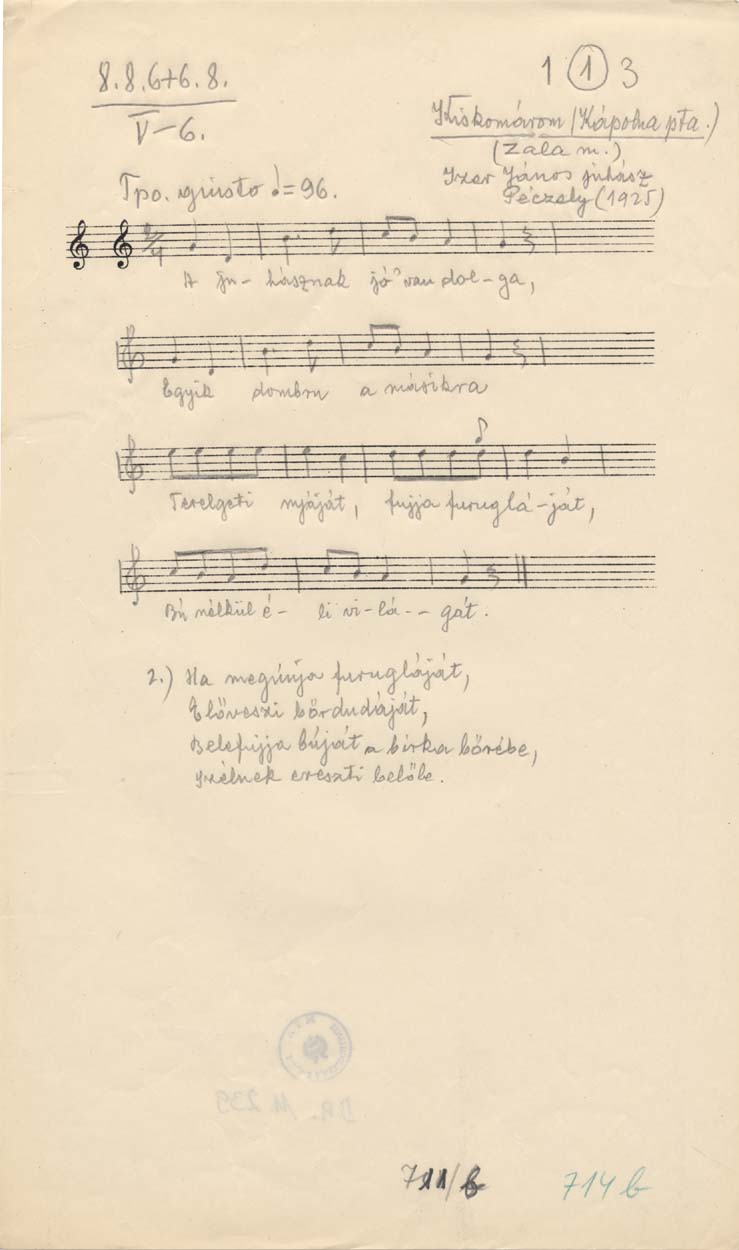 8.8.6+6.8.
V-6.
1 1 3
Kiskomárom (Kápolna pta.)
(Zala m.)
János juhász
Péczely (1925)
Tpo. giusto ♩=96.
2/4
A ju-hásznak jó van dol-ga,
Egyik dombru a másikra
Terelgeti nyáját, fujja furuglá-ját,
Bú nélkül é- li vi-lá-- gát.
2.) Ha megúnja furugláját,
Előveszi bőrdudáját,
Belefujja búját a birka bőrébe,
Szélnek ereszti belőle.
711/b
714 b